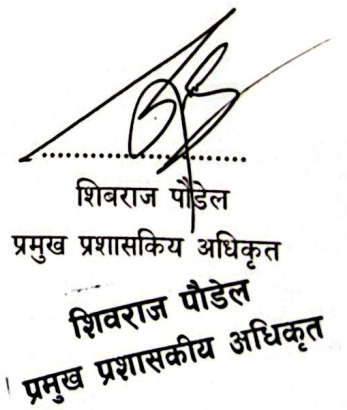 शिबराज पौडेल
प्रमुख प्रशासकिय अधिकृत
शिवराज पौडेल
प्रमुख प्रशासकीय अधिकृत